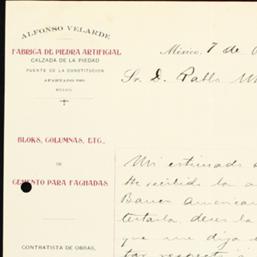 ALFONSO VELARDE
FABRICA DE PIEDRA ARTIFICIAL
CALZADA DE LA PIEDAD
PUENTE DE LA CONSTITUCION
APARTADO
MEXICO.
BLOKS, COLUMNAS, ETC.,
DE
CEMENTO PARA FACHADAS
CONTRATISTA DE OBRAS,
México, 7 de
Sr. D. Pablo
Mi estimado
He recibido la
Banco American
testarla desea la
que me diga
tar respecto a